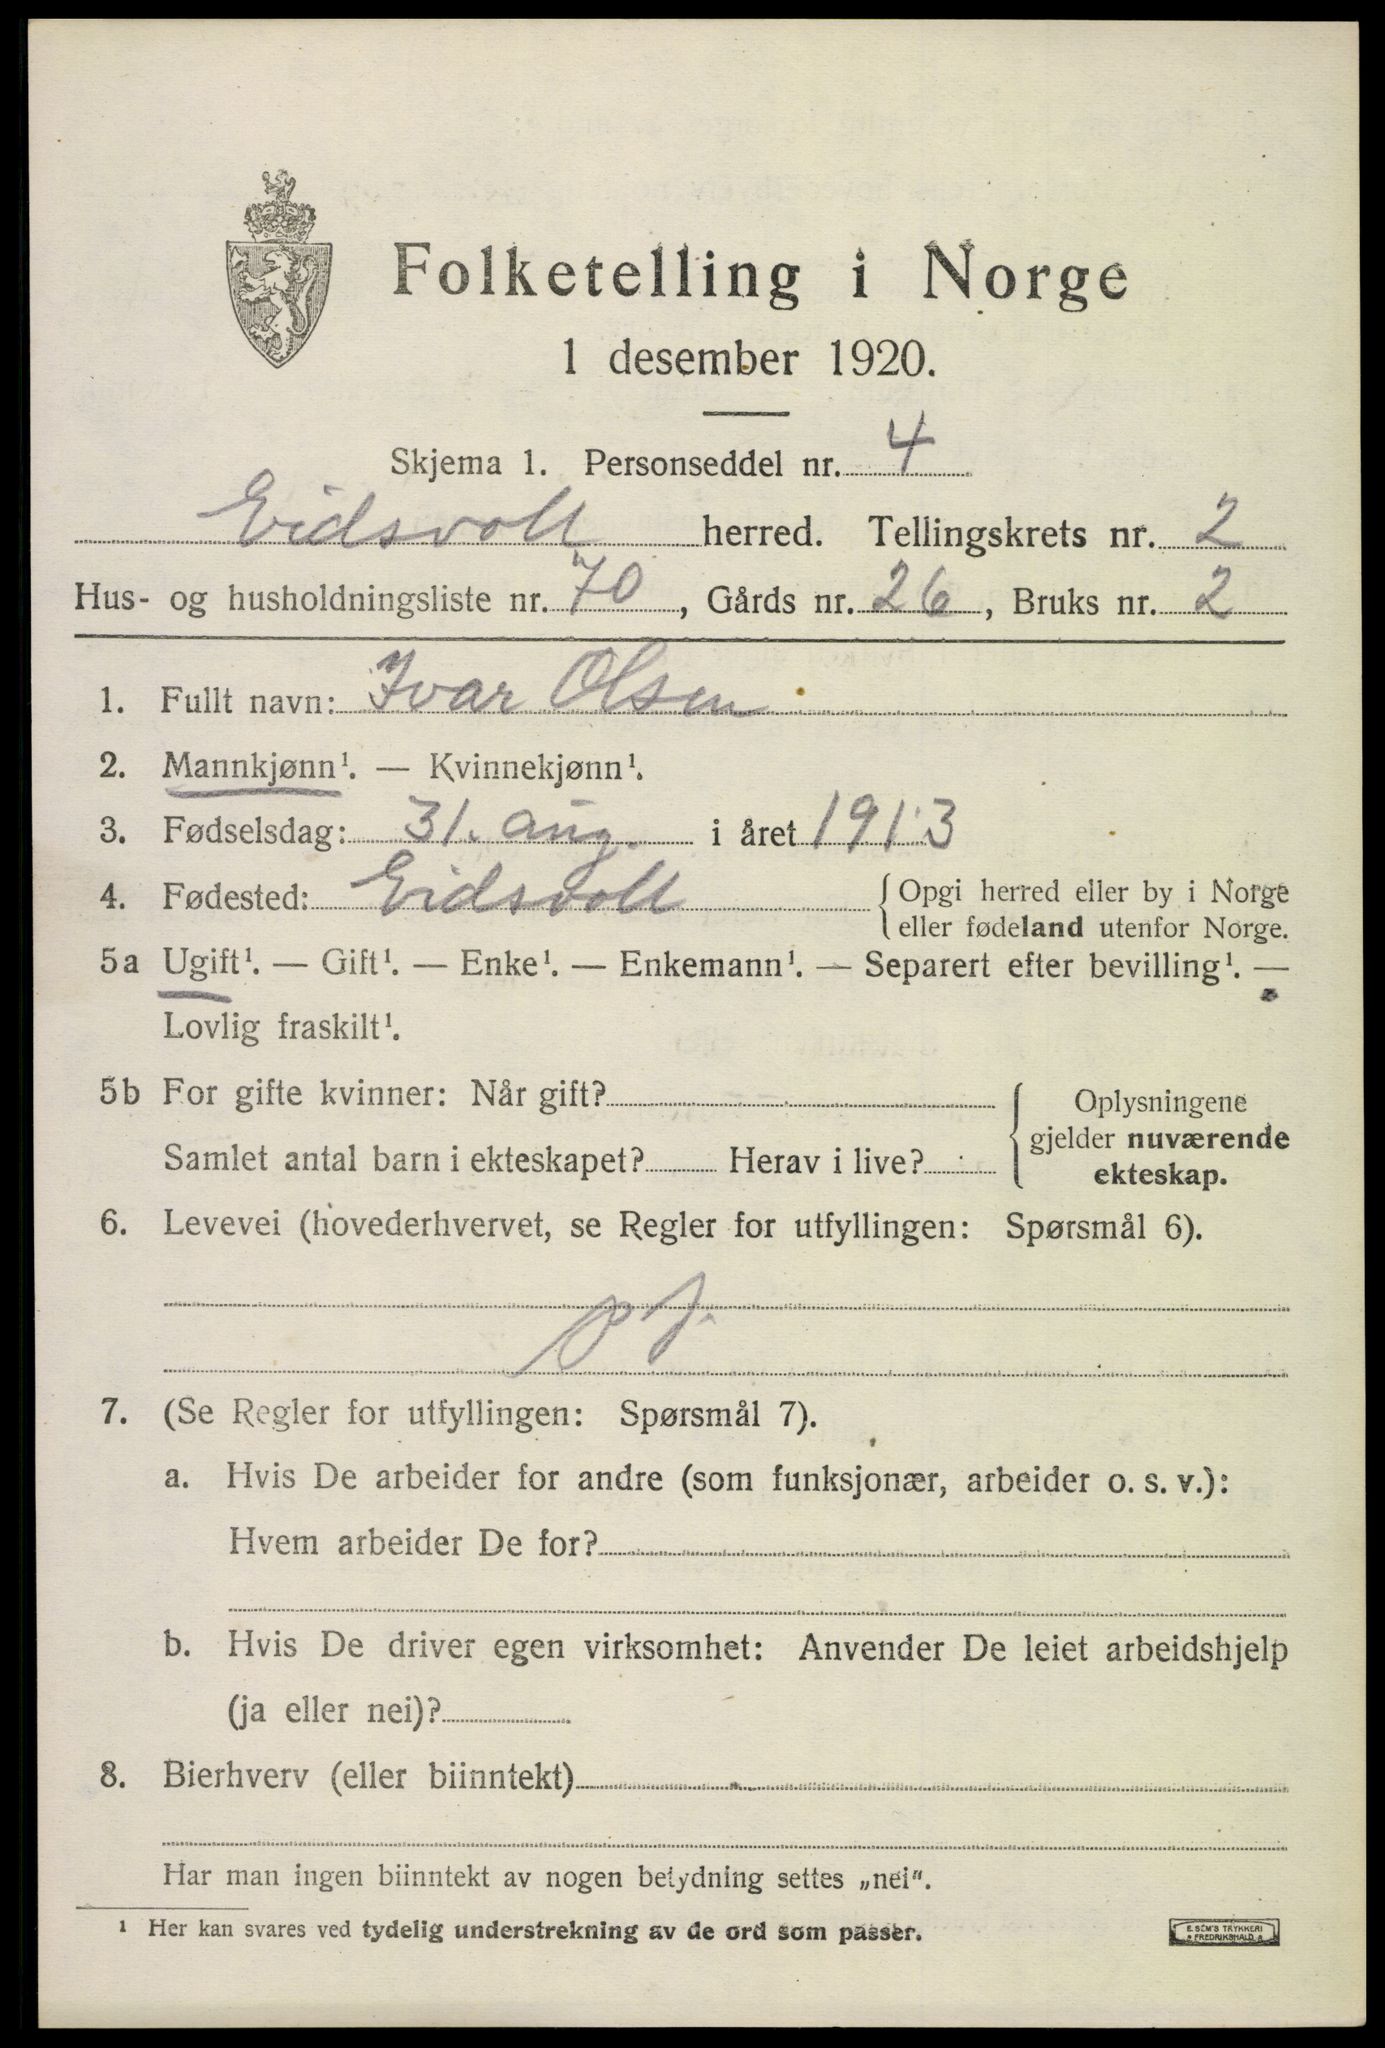 Folketelling i Norge
1 desember 1920.
Skjema 1. Personseddel nr. 4
Eidsvoll herred. Tellingskrets nr. 2
Hus- og husholdningsliste nr. 70, Gårds nr. 26, Bruks nr. 2
1. Fullt navn: Ivar Olsen
2. Mannkjønn¹. — Kvinnekjønn¹.
3. Fødselsdag: 31. aug. i året 1913
4. Fødested: Eidsvoll { Opgi herred eller by i Norge
eller fødeland utenfor Norge.
5a Ugift¹. — Gift¹. — Enke¹. — Enkemann¹. — Separert efter bevilling¹. —
Lovlig fraskilt¹.
5b For gifte kvinner: Når gift? { Oplysningene
gjelder nuværende
Samlet antal barn i ekteskapet? Herav i live?
ekteskap.
6. Levevei (hovederhvervet, se Regler for utfyllingen: Spørsmål 6).
7. (Se Regler for utfyllingen: Spørsmål 7).
a. Hvis De arbeider for andre (som funksjonær, arbeider o. s. v.):
Hvem arbeider De for?
b. Hvis De driver egen virksomhet: Anvender De leiet arbeidshjelp
(ja eller nei)?
8. Bierhverv (eller biinntekt)
Har man ingen biinntekt av nogen betydning settes „nei“.
¹ Her kan svares ved tydelig understrekning av de ord som passer.
E. SEM'S TRYKKERI
FREDRIKSHALD